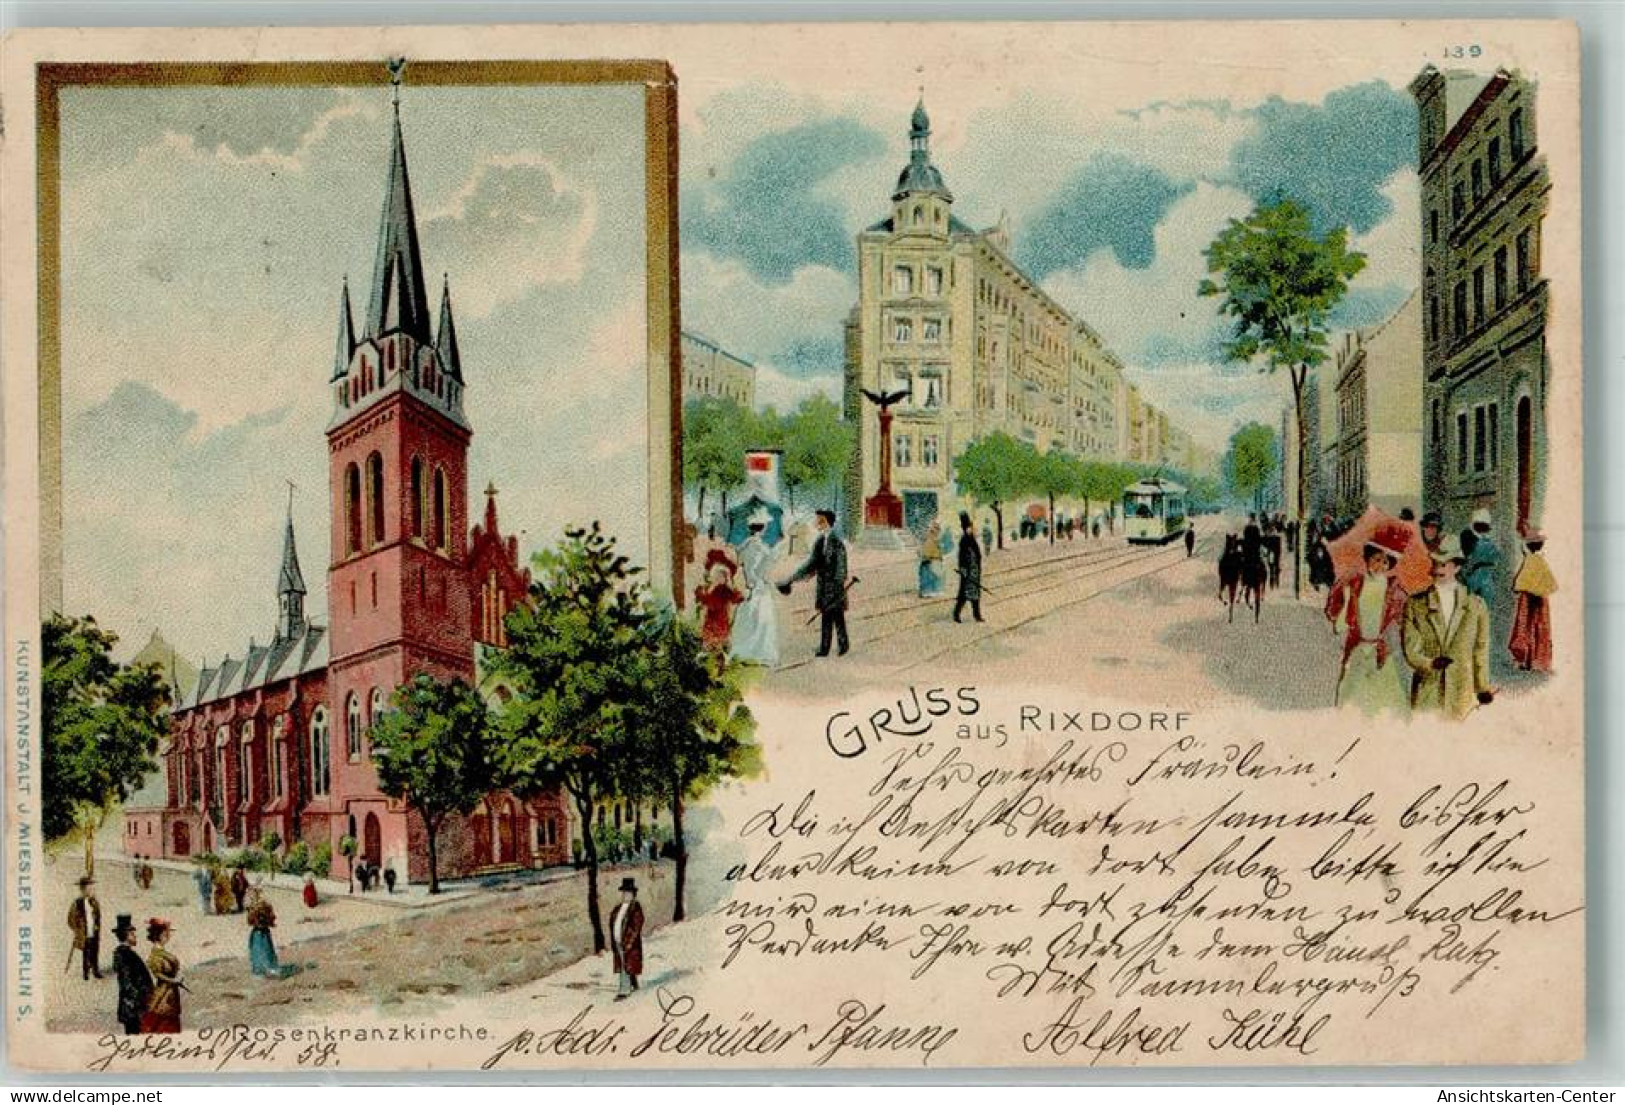 139
GRUSS
aus RIXDORF
Sehr geehrtes Fräulein!
Da ich Ansichtskarten sammle, bisher
aber keine von dort habe bitte ich Sie
mir eine von dort zusenden zu wollen
Verdanke Ihre w. Adresse dem
Mit Sammlergruß
p. Adr. Gebrüder Pfanne Alfred Kühl
Rosenkranzkirche.
Juliusstr. 58.
KUNSTANSTALT J. MIESLER BERLIN S.
picclick-logo
Ansichtskarten-Center